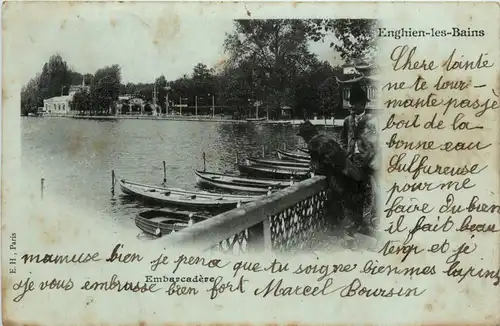 Enghien-les-Bains
Chere tainte
ne te tour-
mante pas je
boit de la
bonne eau
sulfureuse
pour me
faire du bien
il fait beau
temp et je
mamuse bien je pence que tu soigne bien mes lapins
Embarcadère
je vous embrasse bien fort Marcel Boursin
E. H. Paris